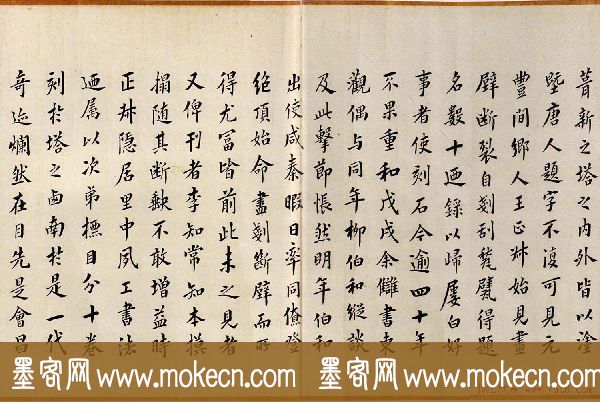 葺新之塔之内外皆以塗
塈唐人題字不復可見元
豐間鄉人王正叔始見畫
壁斷裂自剜剔甃甓得題
名數十迺錄以歸屢白好
事者使刻石今逾四十年
不果重和戊戌余讎書東
觀偶与同年柳伯和縱談
及此擊節悵然明年伯和
出使咸秦暇日率同僚登
绝頂始命盡剗斷壁而所
得尤冨皆前此未之見者
又俾刊者李知常知本摸
搨随其斷缺不敢增益時
正叔隐居里中夙工書法
迺属以次弟橅目分十卷
刻扵塔之卤南扵是一代
奇迹爛然在目先是會昌
墨客网 www.mokecn.com 墨客网 www.mokecn.com